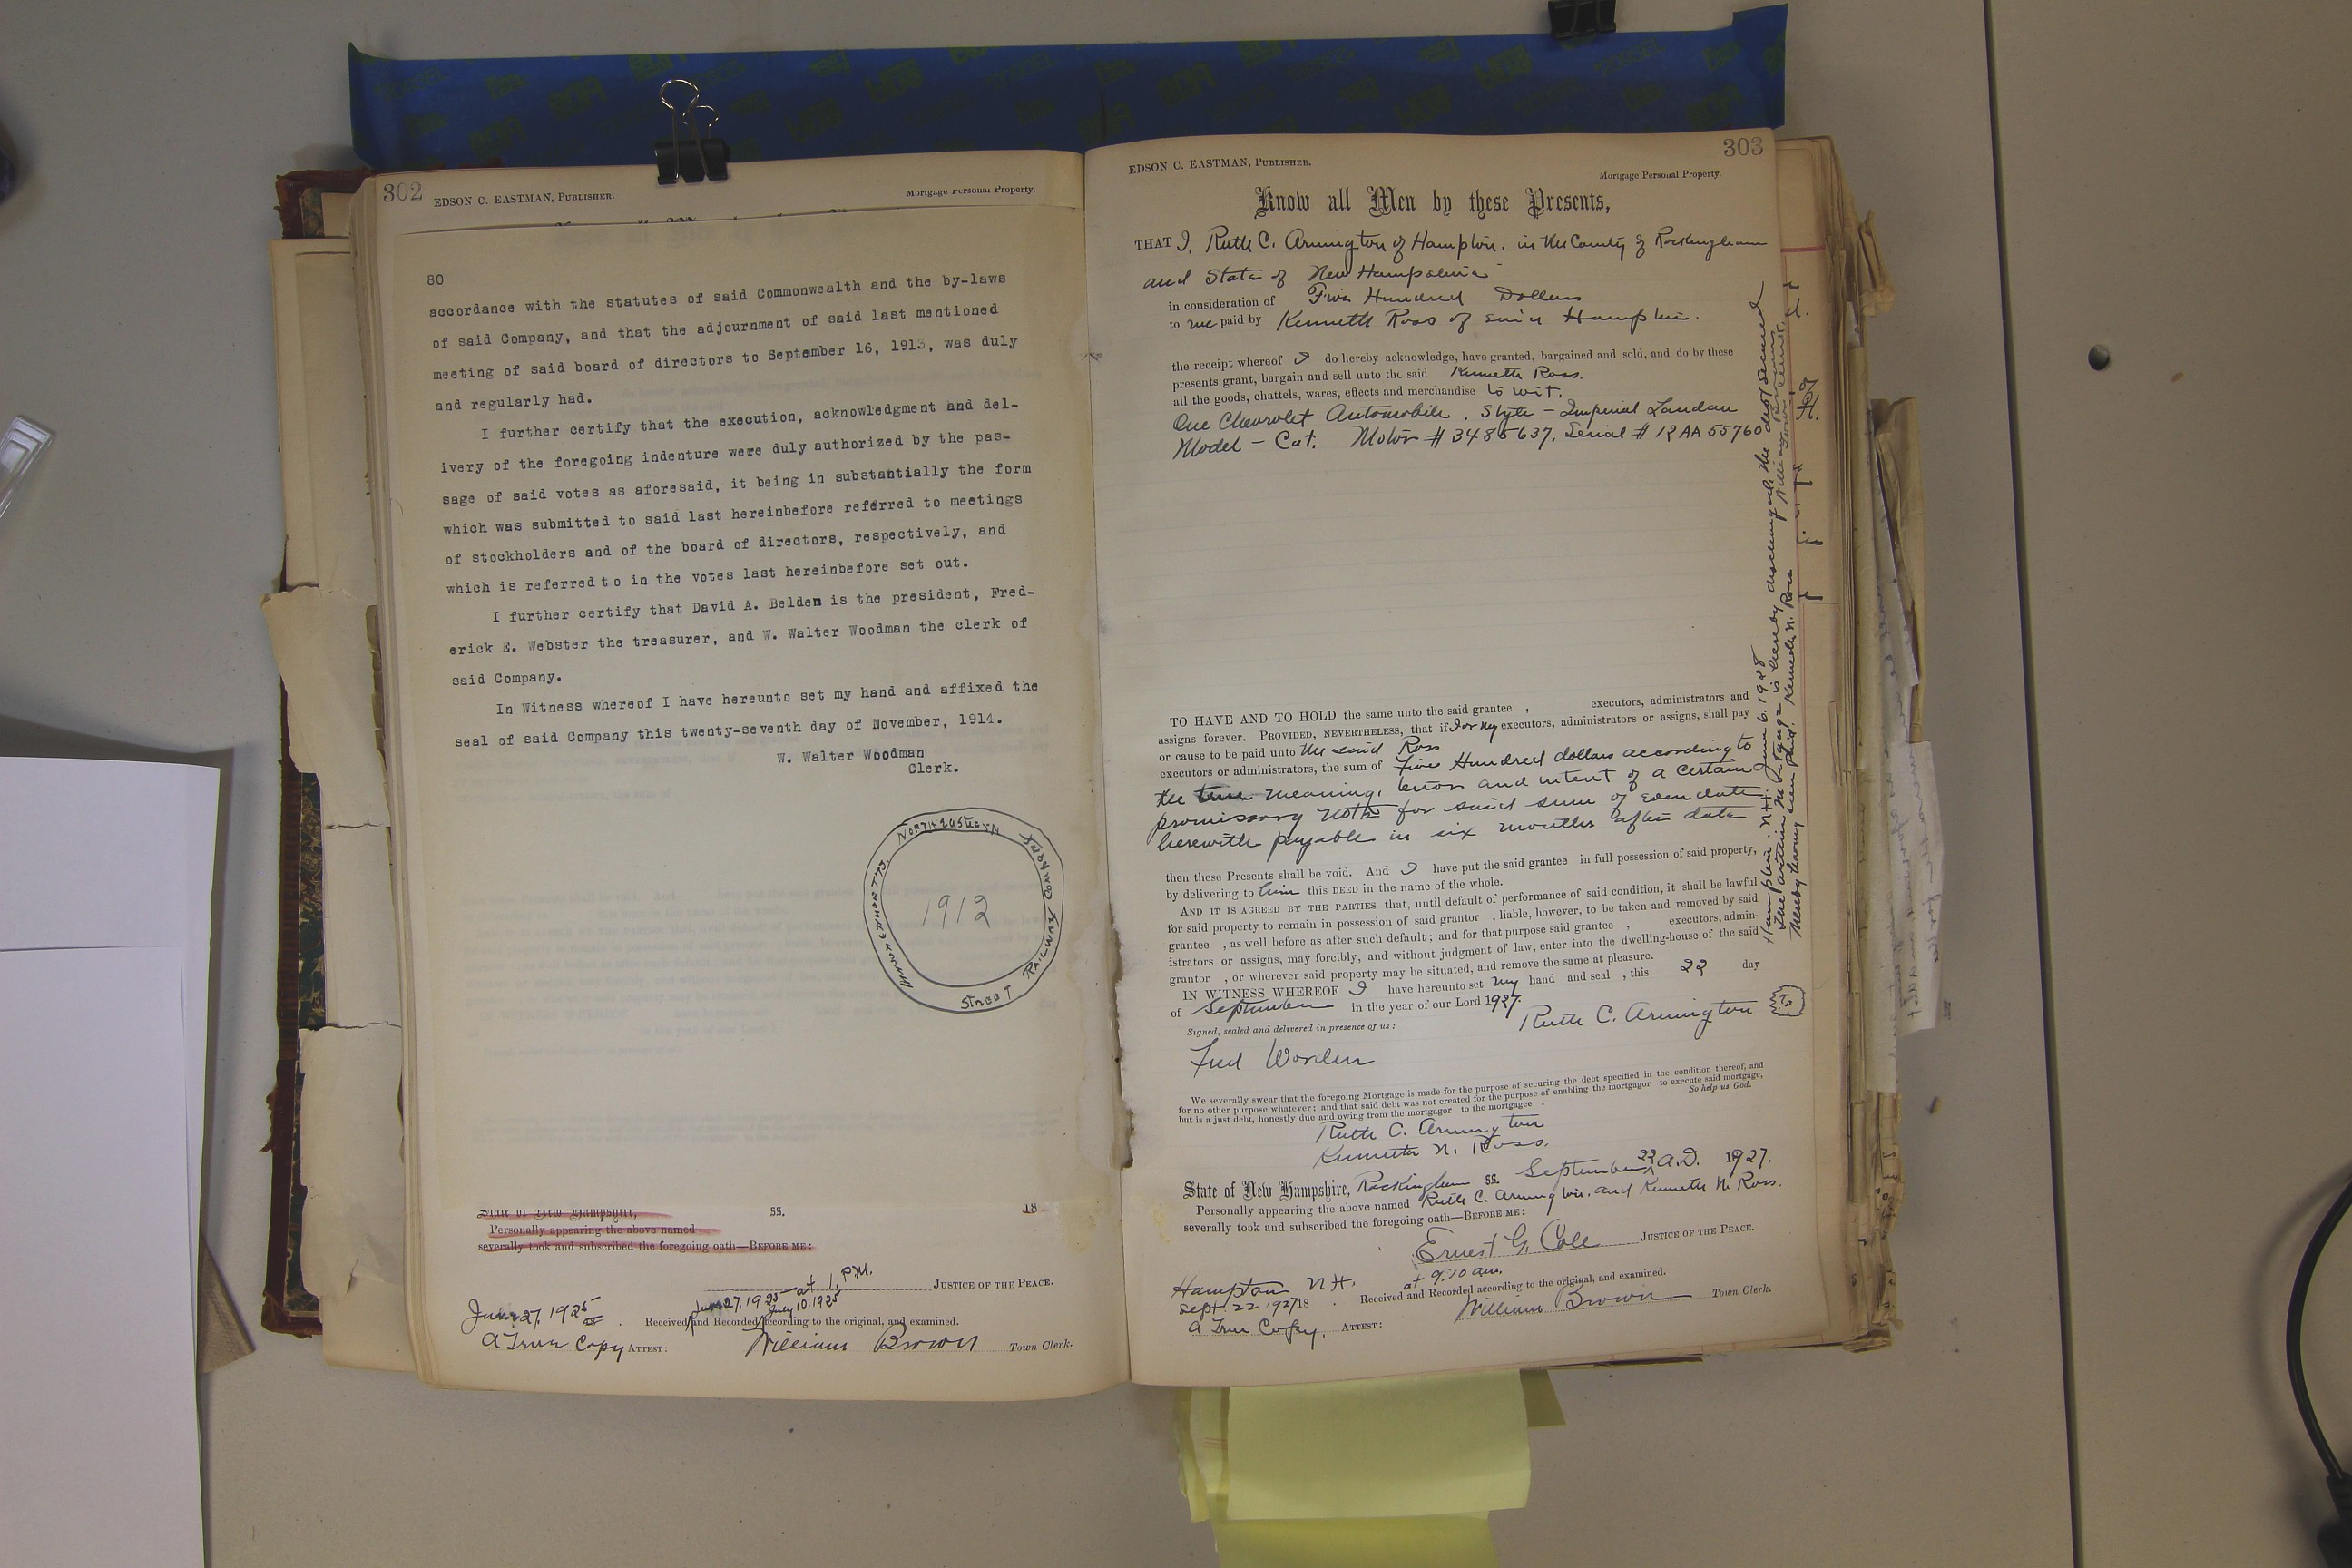 302
EDSON C. EASTMAN, PUBLISHER.
Mortgage Personal Property.
80
accordance with the statutes of said Commonwealth and the by-laws
of said Company, and that the adjournment of said last mentioned
meeting of said board of directors to September 16, 1913, was duly
and regularly had.
I further certify that the execution, acknowledgment and del-
ivery of the foregoing indenture were duly authorized by the pas-
sage of said votes as aforesaid, it being in substantially the form
which was submitted to said last hereinbefore referred to meetings
of stockholders and of the board of directors, respectively, and
which is referred to in the votes last hereinbefore set out.
I further certify that David A. Belden is the president, Fred-
erick E. Webster the treasurer, and W. Walter Woodman the clerk of
said Company.
In Witness whereof I have hereunto set my hand and affixed the
seal of said Company this twenty-seventh day of November, 1914.
W. Walter Woodman
Clerk.
MASSACHUSETTS NORTHEASTERN STREET RAILWAY COMPANY
1912
State of New Hampshire, SS. 18
Personally appearing the above named
severally took and subscribed the foregoing oath—BEFORE ME:
at 1. P.M.
JUSTICE OF THE PEACE.
June 27, 1925 July 10, 1925
June 27, 1925. Received and Recorded according to the original, and examined.
A True Copy ATTEST: William Brown Town Clerk.
303
EDSON C. EASTMAN, PUBLISHER.
Mortgage Personal Property.
Know all Men by these Presents,
THAT I, Ruth C. Armington of Hampton, in the County of Rockingham
and State of New Hampshire
in consideration of Five Hundred Dollars
to me paid by Kenneth Ross of said Hampton.
the receipt whereof I do hereby acknowledge, have granted, bargained and sold, and do by these
presents grant, bargain and sell unto the said Kenneth Ross.
all the goods, chattels, wares, effects and merchandise to wit.
One Chevrolet Automobile, Style - Imperial Landau
Model - Cat. Motor # 3485637, Serial # 12AA55760
TO HAVE AND TO HOLD the same unto the said grantee , executors, administrators and
assigns forever. PROVIDED, NEVERTHELESS, that if I or my executors, administrators or assigns, shall pay
or cause to be paid unto the said Ross
executors or administrators, the sum of Five Hundred dollars according to
the true meaning, tenor and intent of a certain
promissory note for said sum of even date
herewith payable in six months after date
then these Presents shall be void. And I have put the said grantee in full possession of said property,
by delivering to him this DEED in the name of the whole.
AND IT IS AGREED BY THE PARTIES that, until default of performance of said condition, it shall be lawful
for said property to remain in possession of said grantor , liable, however, to be taken and removed by said
grantee , as well before as after such default; and for that purpose said grantee , executors, admin-
istrators or assigns, may forcibly, and without judgment of law, enter into the dwelling-house of the said
grantor , or wherever said property may be situated, and remove the same at pleasure.
IN WITNESS WHEREOF I have hereunto set my hand and seal , this 22 day
of September in the year of our Lord 1927.
Signed, sealed and delivered in presence of us:
Ruth C. Armington
Fred Worden
We severally swear that the foregoing Mortgage is made for the purpose of securing the debt specified in the condition thereof, and
for no other purpose whatever; and that said debt was not created for the purpose of enabling the mortgagor to execute said mortgage,
but is a just debt, honestly due and owing from the mortgagor to the mortgagee . So help us God.
Ruth C. Armington
Kenneth N. Ross.
State of New Hampshire, Rockingham SS. September 22 A.D. 1927.
Personally appearing the above named Ruth C. Armington. and Kenneth N. Ross.
severally took and subscribed the foregoing oath—BEFORE ME:
Ernest G. Cole JUSTICE OF THE PEACE.
Hampton N.H. at 9.10 am.
Sept. 22. 1927 18 . Received and Recorded according to the original, and examined.
A True Copy. ATTEST: William Brown Town Clerk.
Hampton. N.H. June 6, 1928
The within Mortgage is hereby discharged, the debt secured
thereby having been paid. Kenneth N. Ross William Brown
Town Clerk.